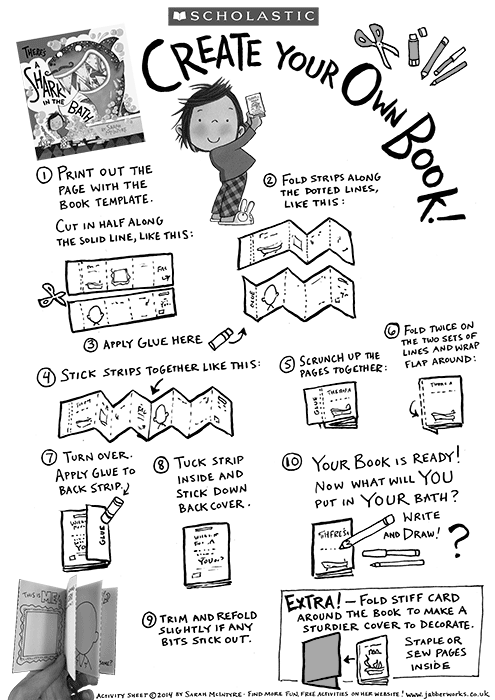 SCHOLASTIC
THERE'S
A
SHARK
IN THE
BATH
SARAH
McINTYRE
CREATE YOUR OWN BOOK!
① PRINT OUT THE
PAGE WITH THE
BOOK TEMPLATE.
CUT IN HALF ALONG
THE SOLID LINE, LIKE THIS:
② FOLD STRIPS ALONG
THE DOTTED LINES,
LIKE THIS:
③ APPLY GLUE HERE
④ STICK STRIPS TOGETHER LIKE THIS:
⑤ SCRUNCH UP THE
PAGES TOGETHER:
GLUE
⑥ FOLD TWICE ON
THE TWO SETS OF
LINES AND WRAP
FLAP AROUND:
⑦ TURN OVER.
APPLY GLUE TO
BACK STRIP.
GLUE
⑧ TUCK STRIP
INSIDE AND
STICK DOWN
BACK COVER.
⑨ TRIM AND REFOLD
SLIGHTLY IF ANY
BITS STICK OUT.
⑩ YOUR BOOK IS READY!
NOW WHAT WILL YOU
PUT IN YOUR BATH?
WRITE
AND DRAW!
?
THIS IS ME
EXTRA! — FOLD STIFF CARD
AROUND THE BOOK TO MAKE A
STURDIER COVER TO DECORATE.
STAPLE OR
SEW PAGES
INSIDE
ACTIVITY SHEET © 2014 BY SARAH McINTYRE · FIND MORE FUN, FREE ACTIVITIES ON HER WEBSITE! www.jabberworks.co.uk